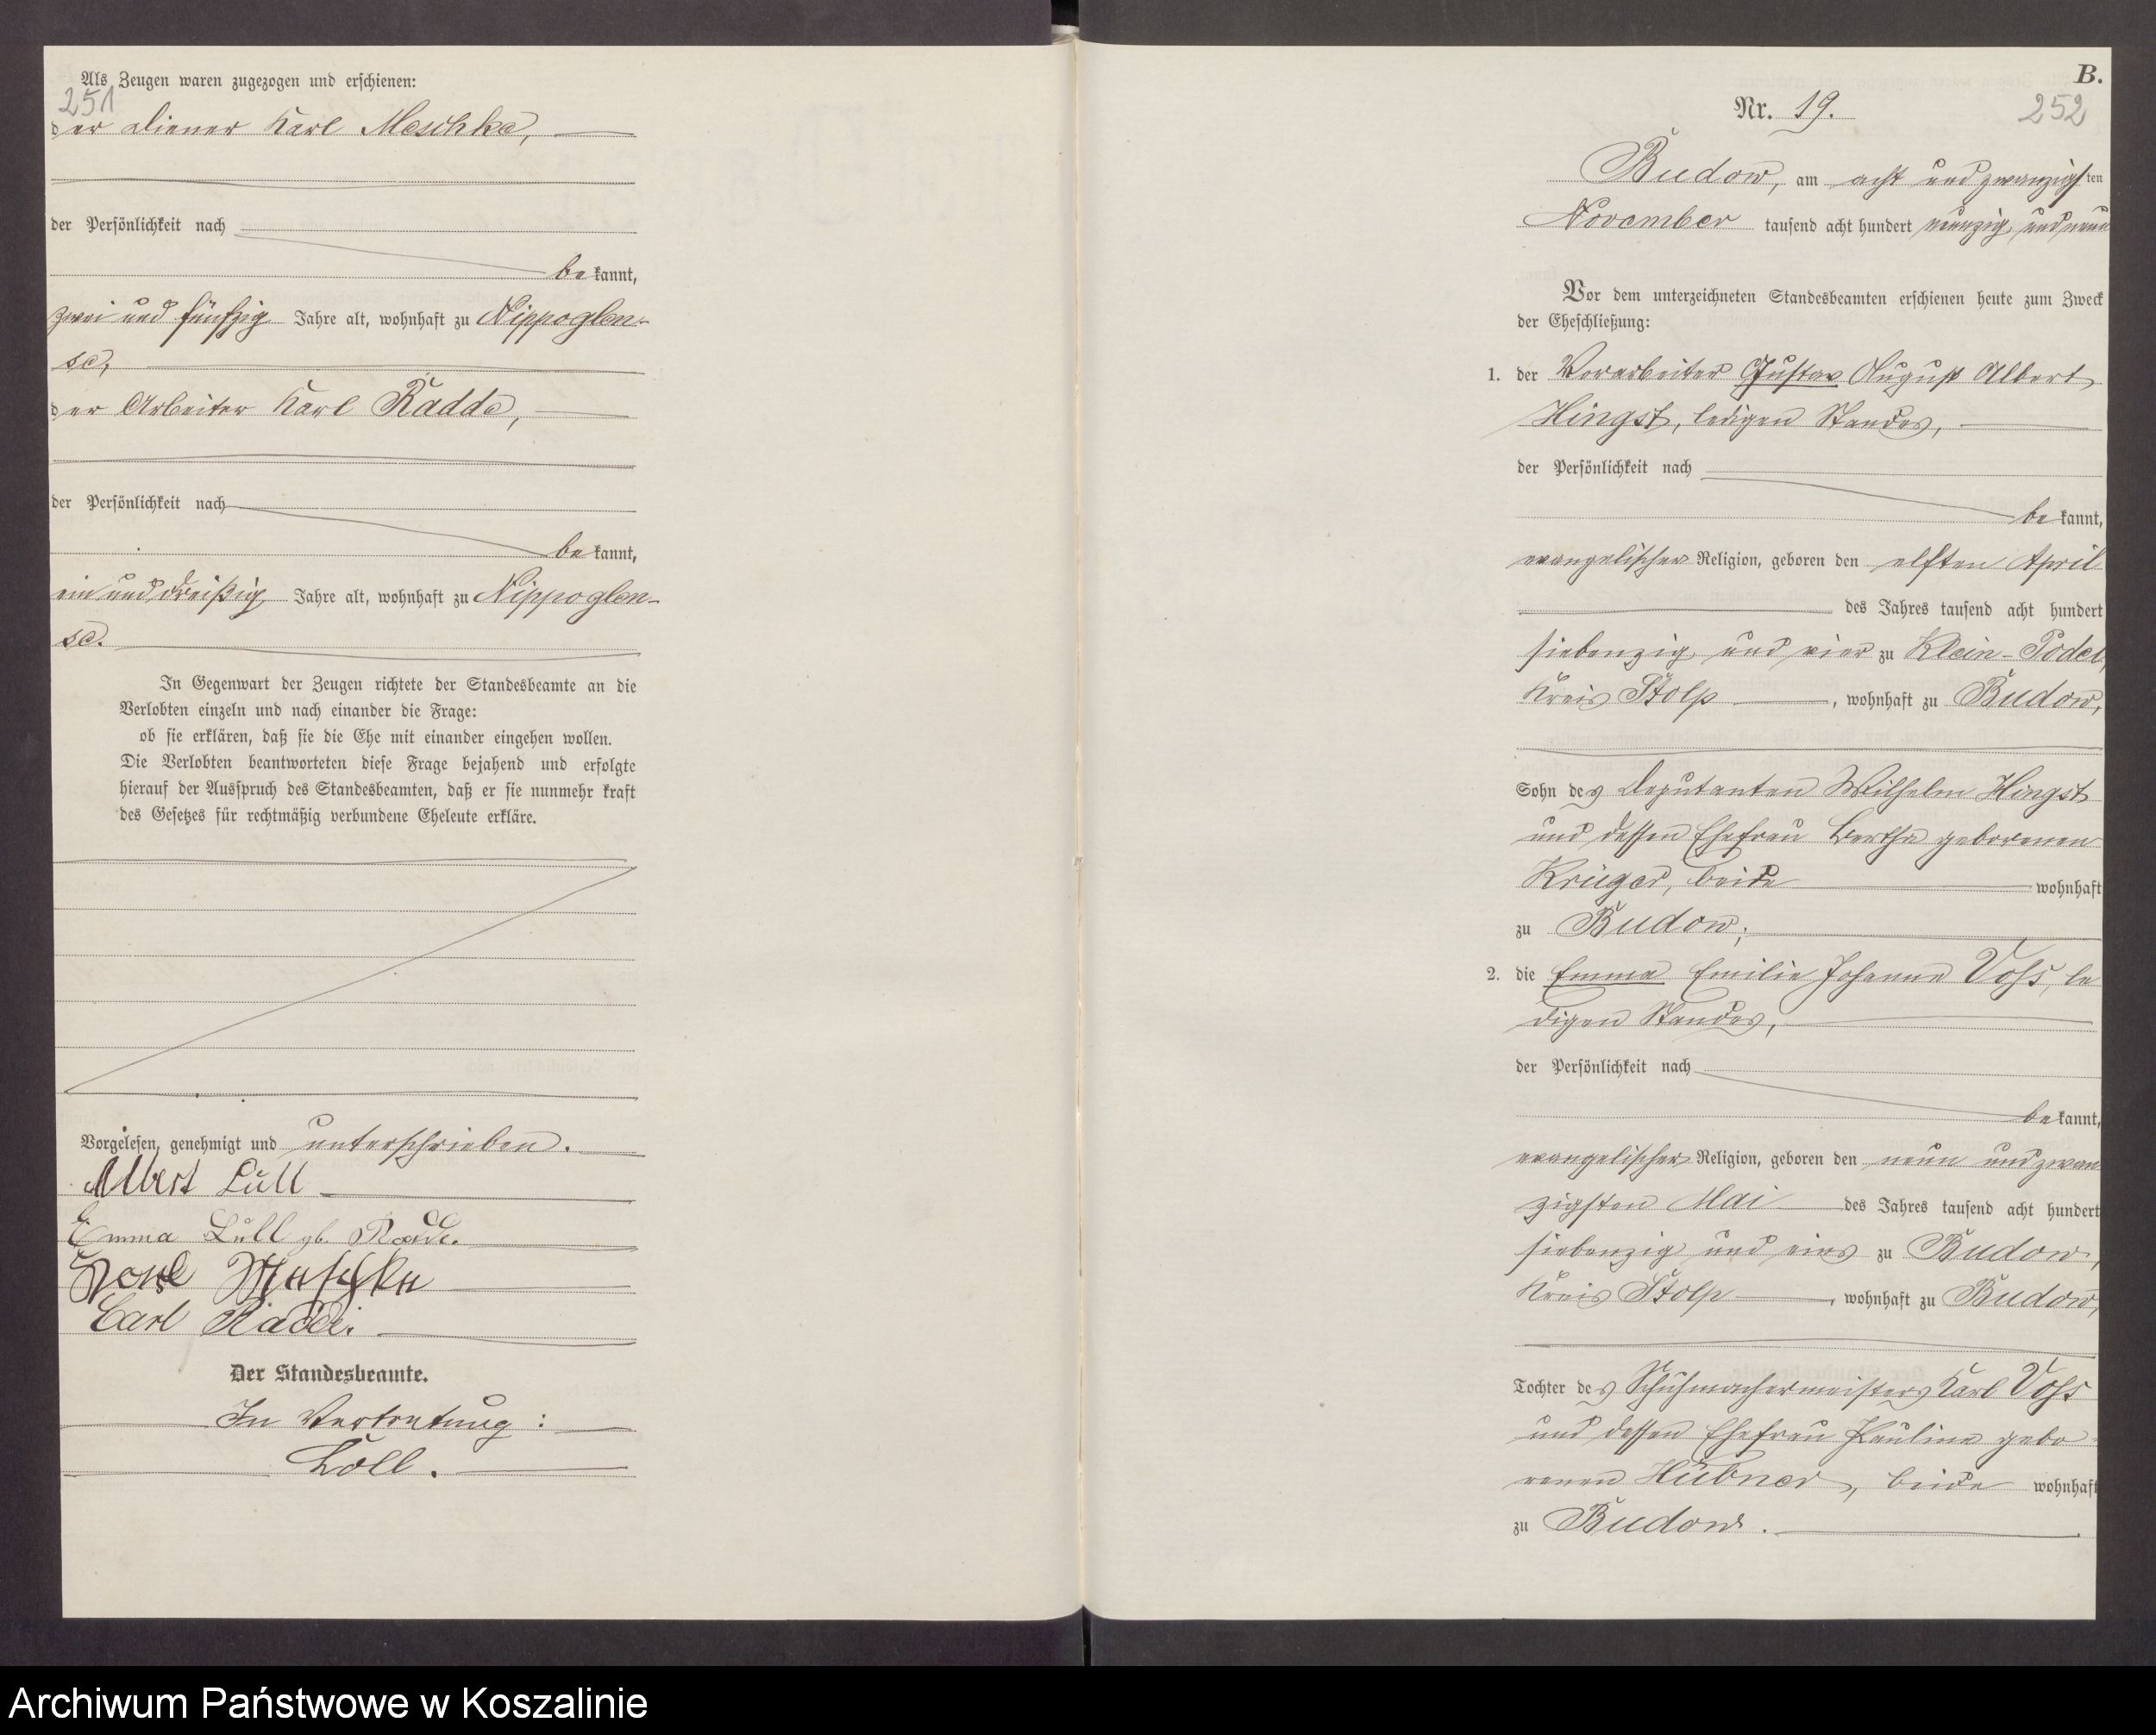 Als Zeugen waren zugezogen und erschienen:
251
der Diener Karl Meschke,
der Persönlichkeit nach
bekannt,
zwei und fünfzig Jahre alt, wohnhaft zu Nippoglen-
se,
der Arbeiter Karl Radde,
der Persönlichkeit nach
bekannt,
ein und dreißig Jahre alt, wohnhaft zu Nippoglen-
se.
In Gegenwart der Zeugen richtete der Standesbeamte an die
Verlobten einzeln und nach einander die Frage:
ob sie erklären, daß sie die Ehe mit einander eingehen wollen.
Die Verlobten beantworteten diese Frage bejahend und erfolgte
hierauf der Ausspruch des Standesbeamten, daß er sie nunmehr kraft
des Gesetzes für rechtmäßig verbundene Eheleute erkläre.
Vorgelesen, genehmigt und unterschrieben.
Albert Lüll
Emma Lüll gb. Radde.
Karl Meschke
Carl Radde.
Der Standesbeamte.
In Vertretung:
B.
Nr. 19.
252
Budow, am acht und zwanzigsten
November tausend acht hundert neunzig und neun
Vor dem unterzeichneten Standesbeamten erschienen heute zum Zweck
der Eheschließung:
1. der Vorarbeiter Gustav August Albert
Hingst, ledigen Standes,
der Persönlichkeit nach
bekannt,
evangelischer Religion, geboren den elften April
des Jahres tausend acht hundert
siebenzig und vier zu Klein-Podel,
Kreis Stolp, wohnhaft zu Budow,
Sohn des Deputanten Wilhelm Hingst
und dessen Ehefrau Bertha geborenen
Krüger, beide wohnhaft
zu Budow;
2. die Emma Emilie Johanne Vohs, le
digen Standes,
der Persönlichkeit nach
bekannt,
evangelischer Religion, geboren den neun und zwan
zigsten Mai des Jahres tausend acht hundert
siebenzig und eins zu Budow,
Kreis Stolp, wohnhaft zu Budow,
Tochter des Schuhmachermeisters Karl Vohs
und dessen Ehefrau Pauline gebo
renen Hübner, beide wohnhaft
zu Budow.
Archiwum Państwowe w Koszalinie